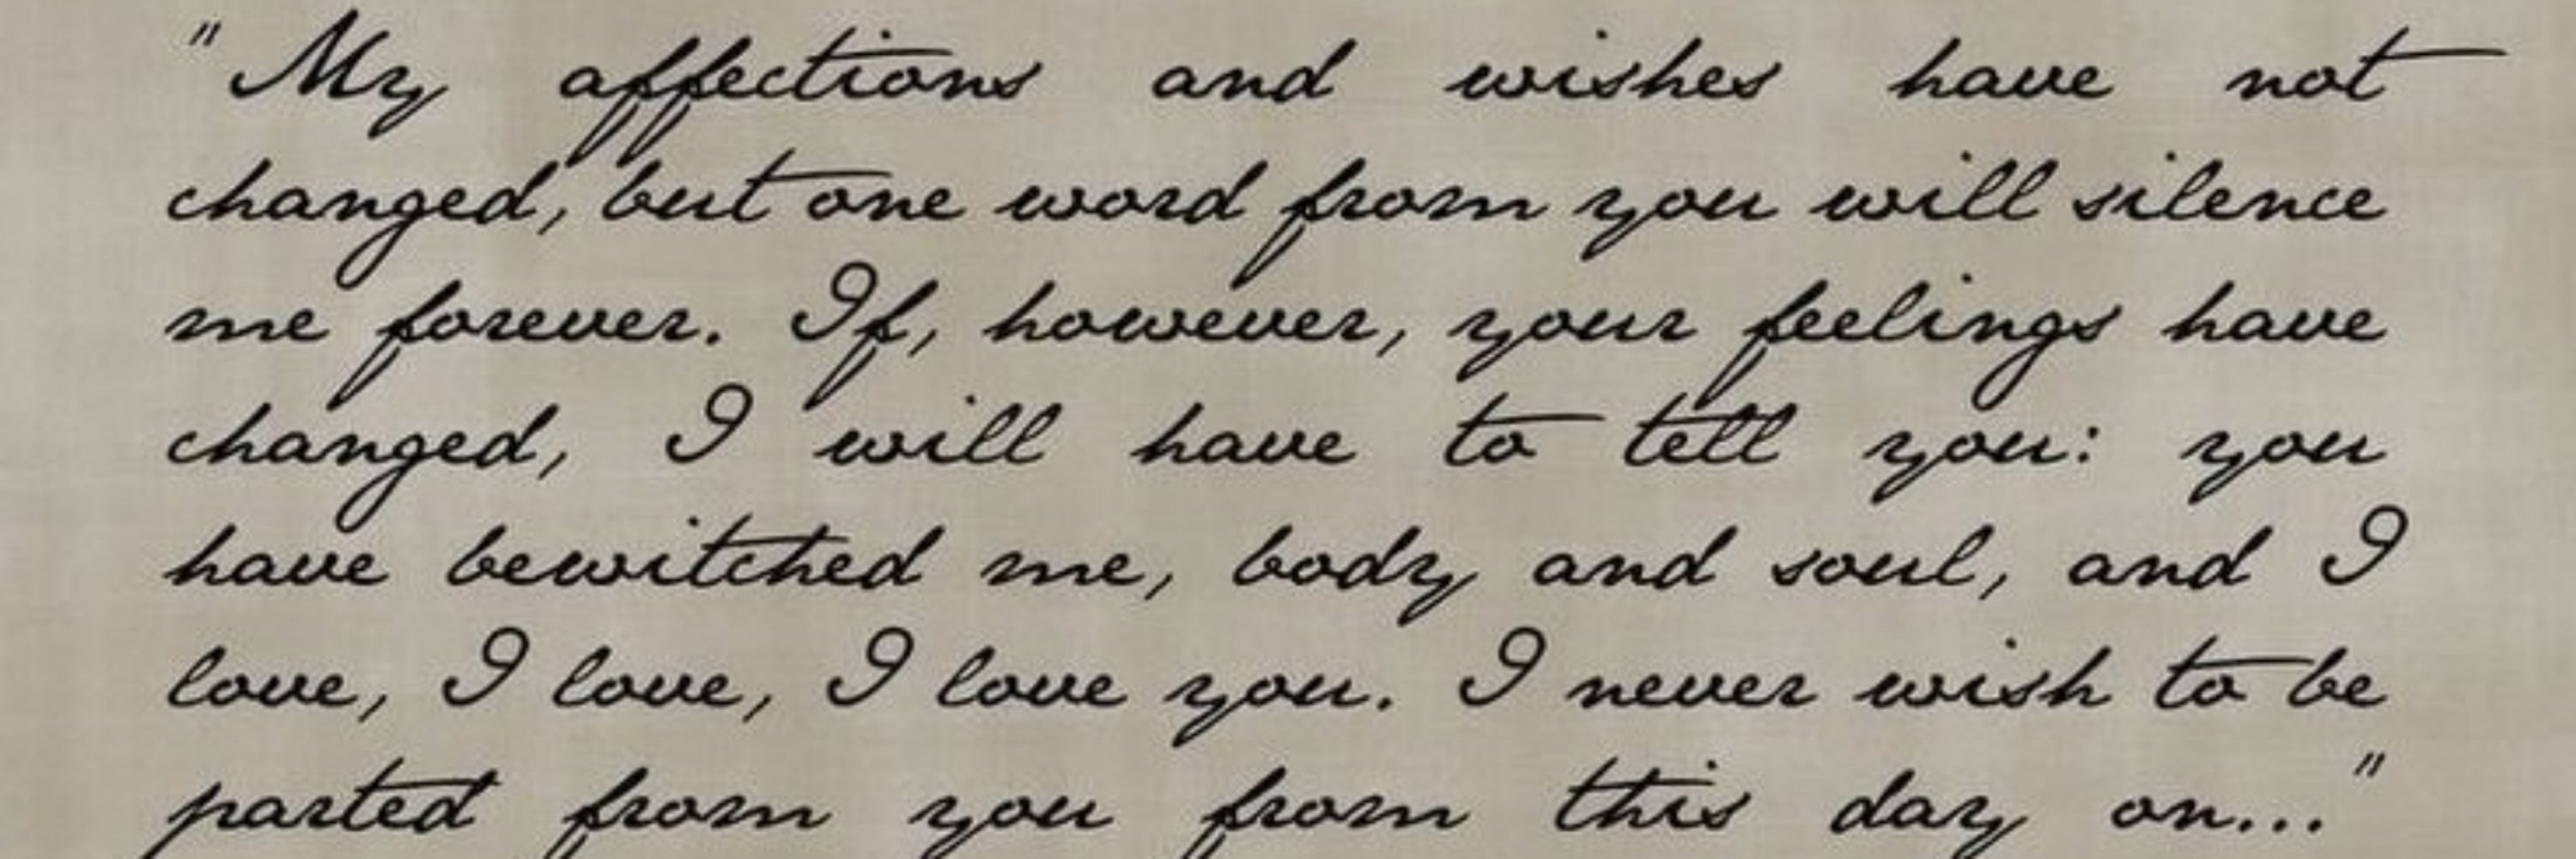 "My affections and wishes have not
changed, but one word from you will silence
me forever. If, however, your feelings have
changed, I will have to tell you: you
have bewitched me, body and soul, and I
love, I love, I love you. I never wish to be
parted from you from this day on..."